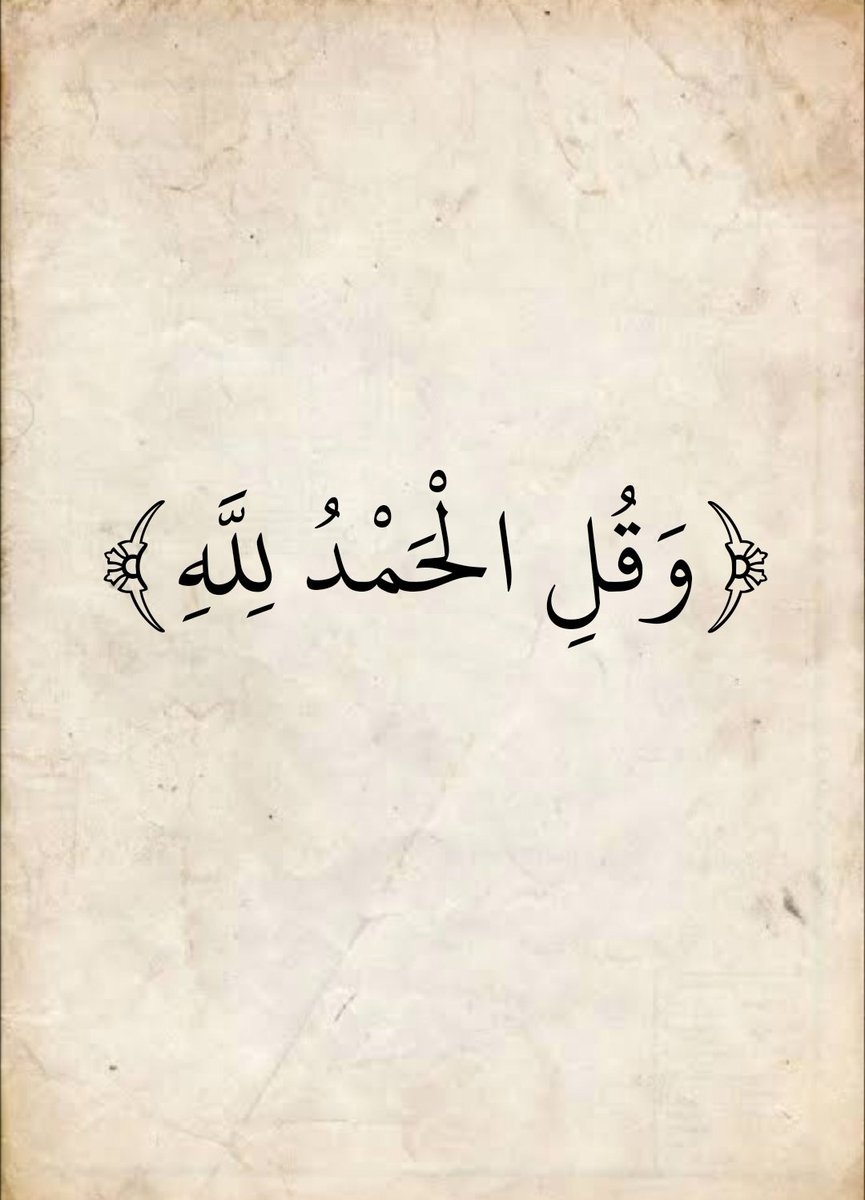 ﴿وَقُلِ الْحَمْدُ لِلَّهِ﴾